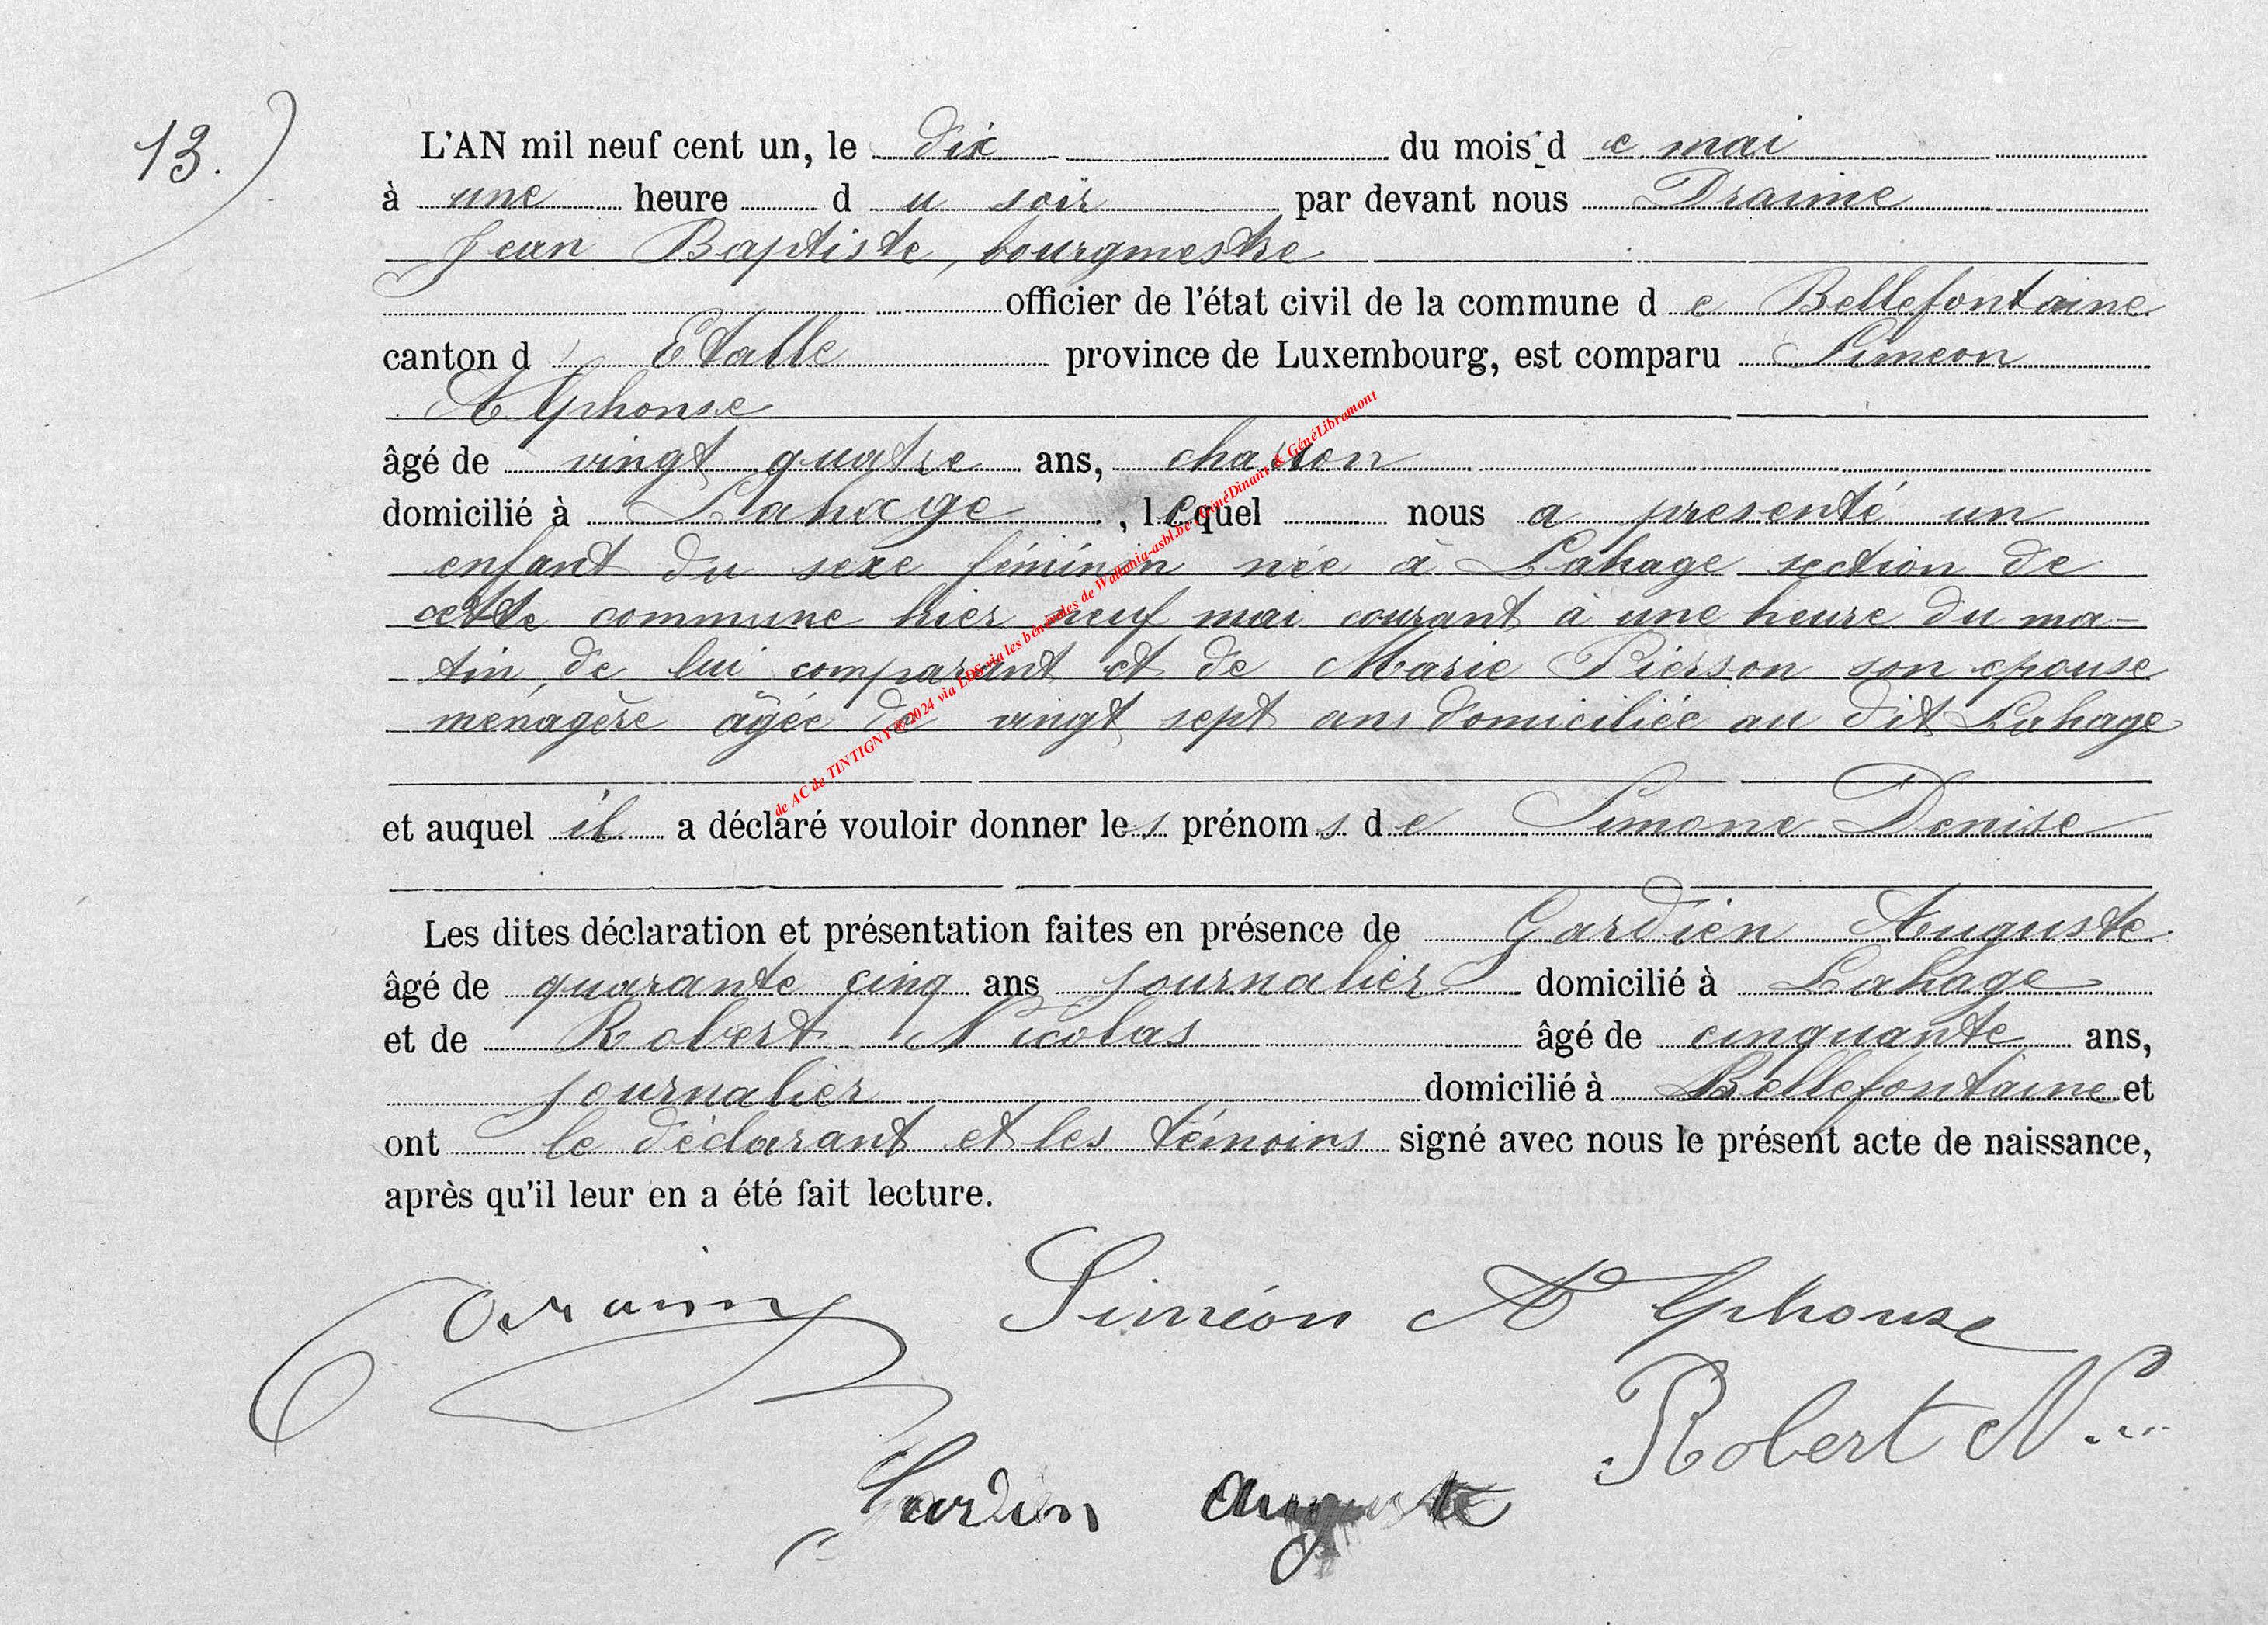 13.)
L'AN mil neuf cent un, le dix du mois d e mai
à une heure d u soir par devant nous Draime
Jean Baptiste, bourgmestre
officier de l'état civil de la commune d e Bellefontaine
canton d' Etalle province de Luxembourg, est comparu Simeon
Alphonse
âgé de vingt quatre ans, charron
domicilié à Lahage, lequel nous a presenté un
enfant du sexe féminin née à Lahage section de
cette commune hier neuf mai courant à une heure du ma-
tin, de lui comparant et de Marie Pierson son epouse
menagère âgée de vingt sept ans domiciliée au dit Lahage
et auquel il a déclaré vouloir donner les prénoms de Simone Denise
Les dites déclaration et présentation faites en présence de Gardien Auguste
âgé de quarante cinq ans journalier domicilié à Lahage
et de Robert Nicolas âgé de cinquante ans,
journalier domicilié à Bellefontaine et
ont le déclarant et les témoins signé avec nous le présent acte de naissance,
après qu'il leur en a été fait lecture.
Siméon Alphonse
Robert N...
Gardien Auguste
de AC de TINTIGNY © 2024 via LDS via les bénévoles de Wallonia-asbl.be : GénéDinant & GénéLibramont